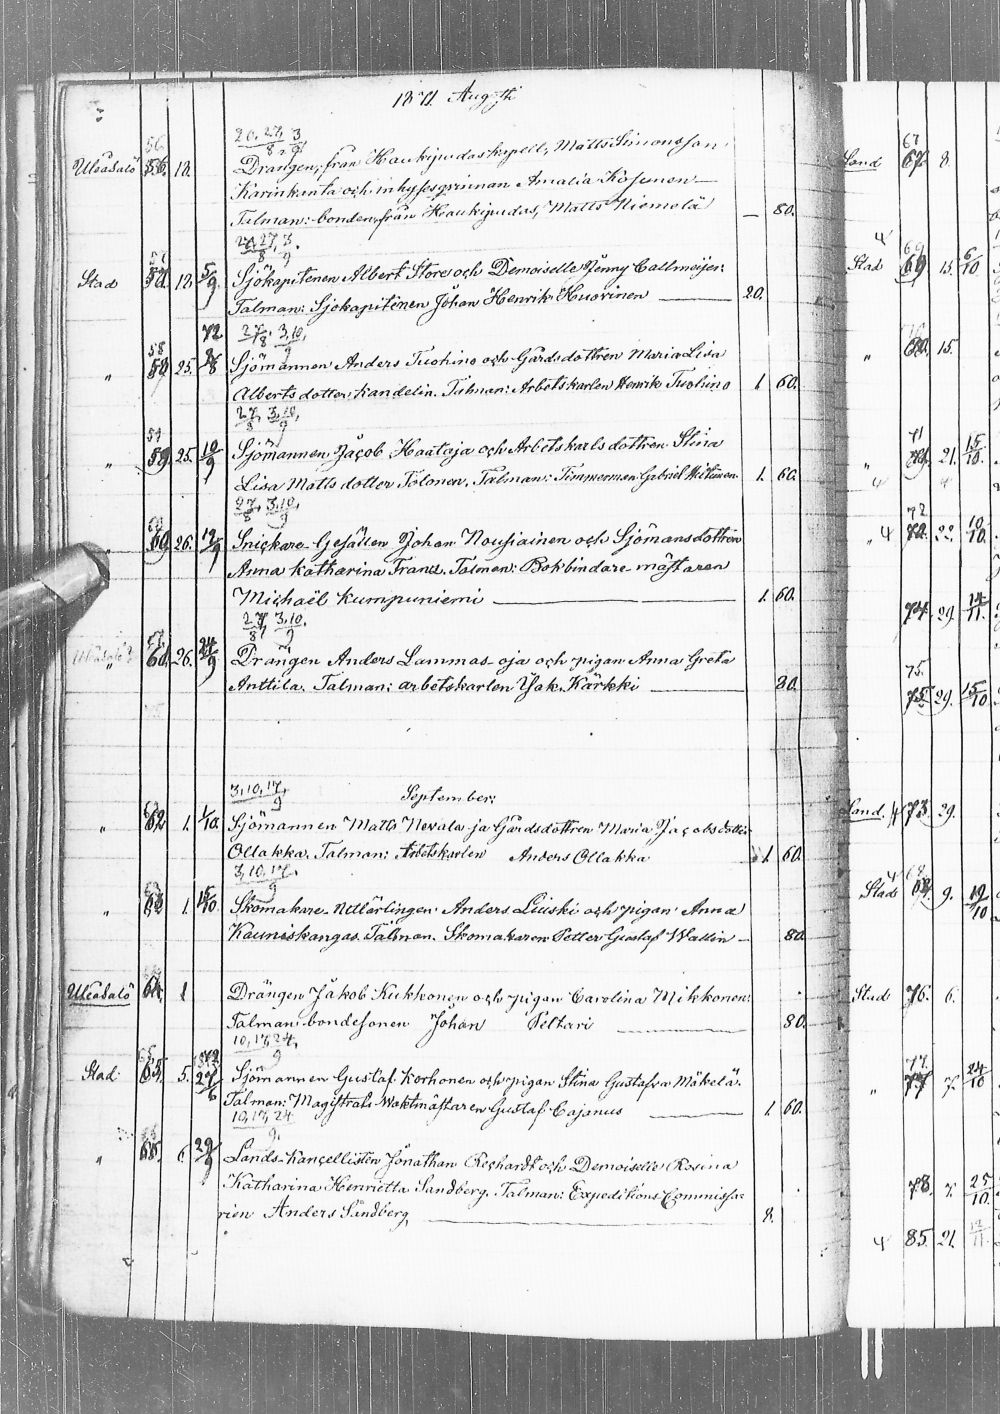 1871 Augusti
20, 27, 3
8 9
Uleåsalo 56. 13. Drängen, från Haukipudas kapell, Matts Simonsson
Karinkanta och inhysesqvinnan Amalia Kosunen —
Talman: bonden från Haukipudas, Matts Niemelä — 80.
20, 27, 3.
8 9
Stad 57. 12. 5/9 Sjökapitenen Albert Store och Demoiselle Jenny Calmeijer.
Talman: Sjökapitenen Johan Henrik Huovinen — 20.
72 27, 3, 10,
8 9
58
" 58. 25. Sjömannen Anders Tuohino och Gårdsdottren Maria Lisa
Alberts dotter Kandelin. Talman: Arbetskarlen Henrik Tuohino 1. 60.
27, 3, 10,
8 9
59
" 59. 25. 10/9 Sjömannen Jacob Haataja och Arbetskarlsdottren Stina
Lisa Matts dotter Tölonen. Talman: Timmerman Gabriel 1. 60.
27, 3, 10,
8 9
" 60. 26. 19/9 Snickare-Gesällen Johan Nousiainen och Sjömansdottren
Anna Katharina Franz. Talman: Bokbindare-mästaren
Michaël Kumpuniemi — 1. 60.
27, 3, 10.
8 9
" 61. 26. 24/9 Drängen Anders Lammas-oja och pigan Anna Greta
Anttila. Talman: arbetskarlen Isak Kärkki — 80.
3, 10, 17,
9
September.
" 62 1. 1/10. Sjömannen Matts Nevala ja Gårdsdottren Maria Jacobsdotter
Ollakka. Talman: Arbetskarlen Anders Ollakka 1. 60.
3, 10, 17.
9
" 63 1. 15/10 Skomakare-Utlärlingen Anders Liuski och pigan Anna
Kauniskangas. Talman. Skomakaren Petter Gustaf Wallin — 80
Uleåsalo 64. 1 Drängen Jakob Kukkonen och pigan Carolina Mikkonen.
Talman: bondesonen Johan Peltari — 80.
10, 17, 24,
9
Stad 65. 5. 27/6 Sjömannen Gustaf Korhonen och pigan Stina Gustafva Mäkelä.
Talman: Magistrats Waktmästaren Gustaf Cajanus — 1. 60.
10, 17, 24
9.
" 66. 6. 29/9 Lands-Kancellisten Jonathan Rechardt och Demoiselle Rosina
Katharina Henrietta Sandberg. Talman: Expeditions-Commissa-
rien Anders Sandberg — 8.
67
Land 67. 8.
69
Stad 69 15. 6/10
" 15.
71
" 21. 15/10.
72
" 72. 22. 10/10.
74. 29. 12/11.
75.
75. 29. 15/10
Land. 73. 29.
68
Stad 68. 9. 12/10
Stad 76. 6.
77
" 77 7. 24/10
78. 7. 25/10.
85. 21.